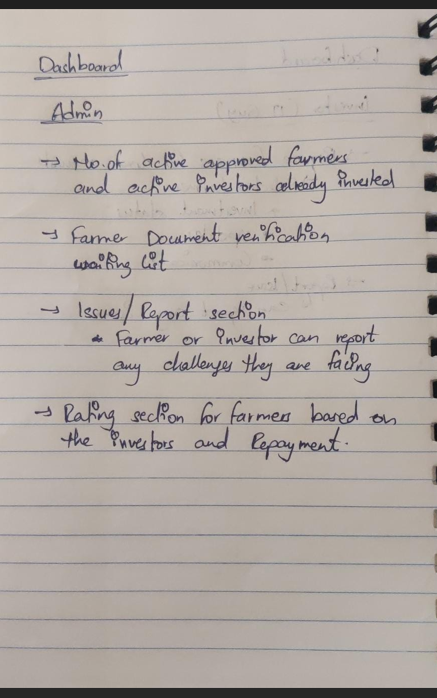 Dashboard
Admin
→ No. of active approved farmers
and active investors already invested
→ Farmer Document verification
waiting list
→ Issues/Report section
* Farmer or investor can report
any challenges they are facing
→ Rating section for farmers based on
the investors and Repayment.